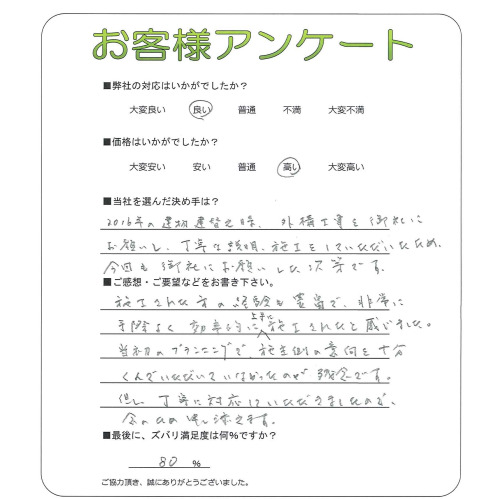 お客様アンケート
■弊社の対応はいかがでしたか?
大変良い 良い 普通 不満 大変不満
■価格はいかがでしたか?
大変安い 安い 普通 高い 大変高い
■当社を選んだ決め手は?
2016年の建物建替え時、外構工事を御社に
お願いし、丁寧な説明、施工をしていただいたため、
今回も御社にお願いした次第です。
■ご感想・ご要望などをお書き下さい。
施工された方の経験も豊富で、非常に
手際よく効率的に上手に施工されたと感じました。
当初のプランニングで施主側の意向を十分
くんでいただいていなかったのが残念です。
但し、丁寧に対応していただきましたので、
念のため申し添えます。
■最後に、ズバリ満足度は何%ですか?
80 %
ご協力頂き、誠にありがとうございました。